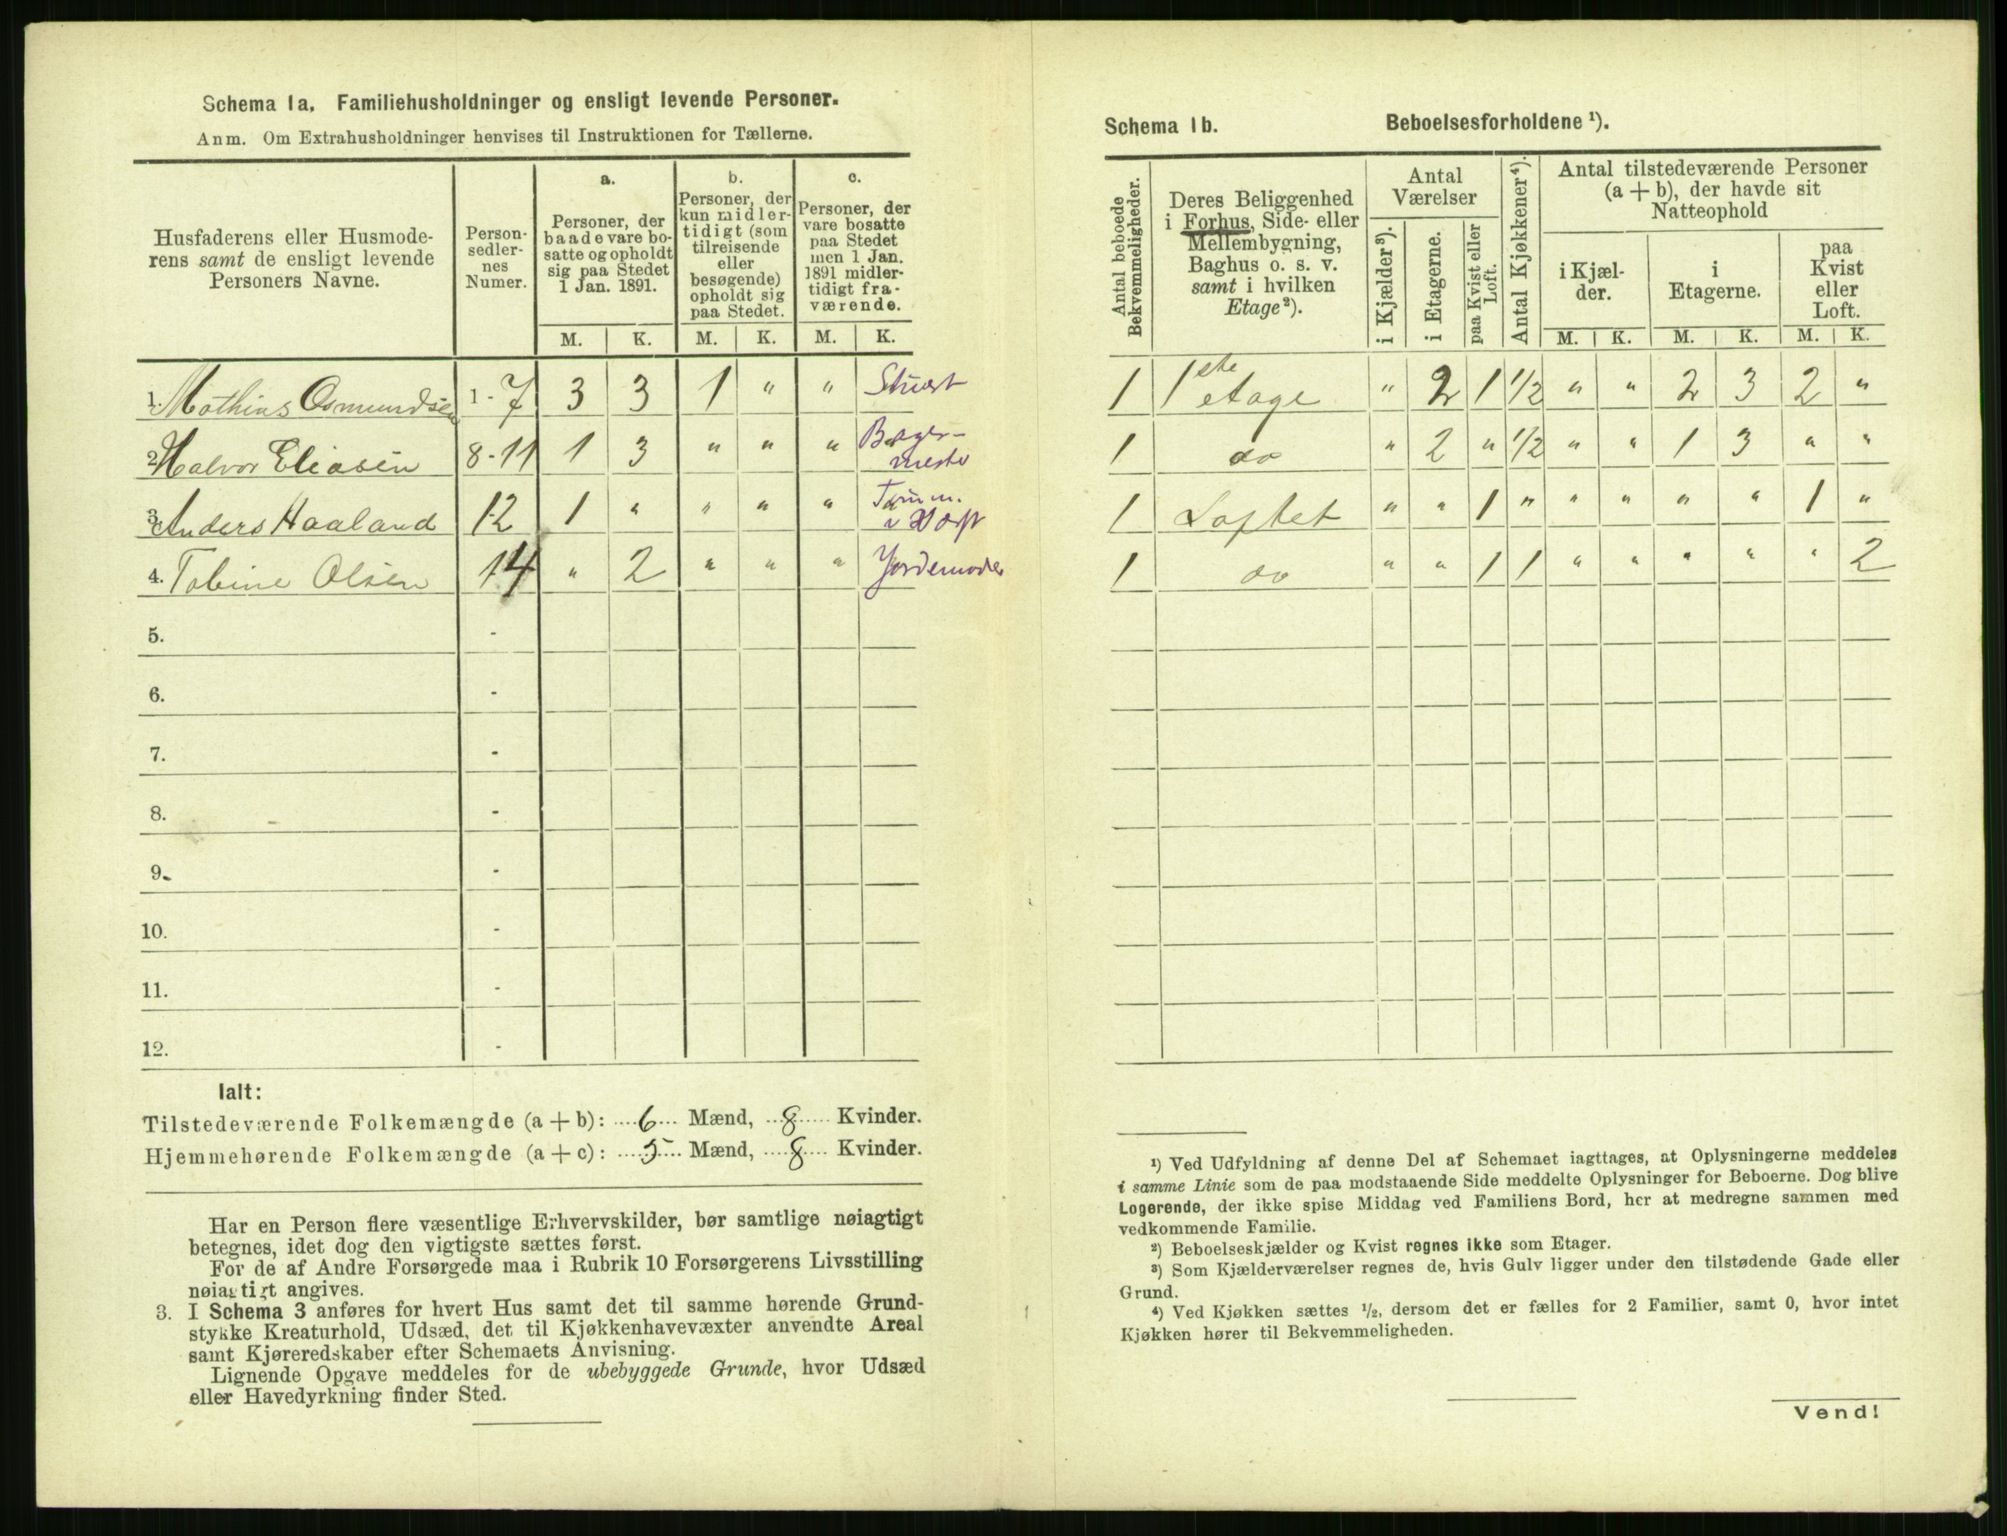 Schema 1a. Familiehusholdninger og ensligt levende Personer.
Anm. Om Extrahusholdninger henvises til Instruktionen for Tællerne.
Husfaderens eller Husmoderens samt de ensligt levende Personers Navne.
Person-sedlernes Numer.
a. Personer, der baade vare bosatte og opholdt sig paa Stedet 1 Jan. 1891.
b. Personer, der kun midlertidigt (som tilreisende eller besøgende) opholdt sig paa Stedet.
c. Personer, der vare bosatte paa Stedet men 1 Jan. 1891 midlertidigt fraværende.
M. K. M. K. M. K.
1. Mathias Osmundsen 1 - 7 3 3 1 " "
2. Halvor Eliasen 8 - 11 1 3 " " " Bager-
mester
3. Anders Haaland 12 1 " " " " Tømm.
4. Tobine Olsen 14 " 2 " " " Jordemoder
5. -
6. -
7. -
8. -
9. -
10. -
11. -
12. -
Ialt:
Tilstedeværende Folkemængde (a + b): 6 Mænd, 8 Kvinder.
Hjemmehørende Folkemængde (a + c): 5 Mænd, 8 Kvinder.
Har en Person flere væsentlige Erhvervskilder, bør samtlige nøiagtigt
betegnes, idet dog den vigtigste sættes først.
For de af Andre Forsørgede maa i Rubrik 10 Forsørgerens Livsstilling
nøiagtigt angives.
3. I Schema 3 anføres for hvert Hus samt det til samme hørende Grund-
stykke Kreaturhold, Udsæd, det til Kjøkkenhavevæxter anvendte Areal
samt Kjøreredskaber efter Schemaets Anvisning.
Lignende Opgave meddeles for de ubebyggede Grunde, hvor Udsæd
eller Havedyrkning finder Sted.
Schema 1b. Beboelsesforholdene ¹).
Antal beboede Bekvemmeligheder.
Deres Beliggenhed i Forhus, Side- eller Mellembygning, Baghus o. s. v. samt i hvilken Etage²).
Antal Værelser
i Kjælder³).
i Etagerne.
paa Kvist eller Loft.
Antal Kjøkkener⁴).
Antal tilstedeværende Personer (a + b), der havde sit Natteophold
i Kjælder.
i Etagerne.
paa Kvist eller Loft.
M. K. M. K. M. K.
1 1ste etage " 2 1 1/2 " " 2 3 2 "
1 do " 2 " 1/2 " " 1 3 " "
1 Loftet " " 1 " " " " " 1 "
1 do " " 1 1 " " " " " 2
¹) Ved Udfyldning af denne Del af Schemaet iagttages, at Oplysningerne meddeles
i samme Linie som de paa modstaaende Side meddelte Oplysninger for Beboerne. Dog blive
Logerende, der ikke spise Middag ved Familiens Bord, her at medregne sammen med
vedkommende Familie.
²) Beboelseskjælder og Kvist regnes ikke som Etager.
³) Som Kjælderværelser regnes de, hvis Gulv ligger under den tilstødende Gade eller
Grund.
⁴) Ved Kjøkken sættes ½, dersom det er fælles for 2 Familier, samt 0, hvor intet
Kjøkken hører til Bekvemmeligheden.
Vend!